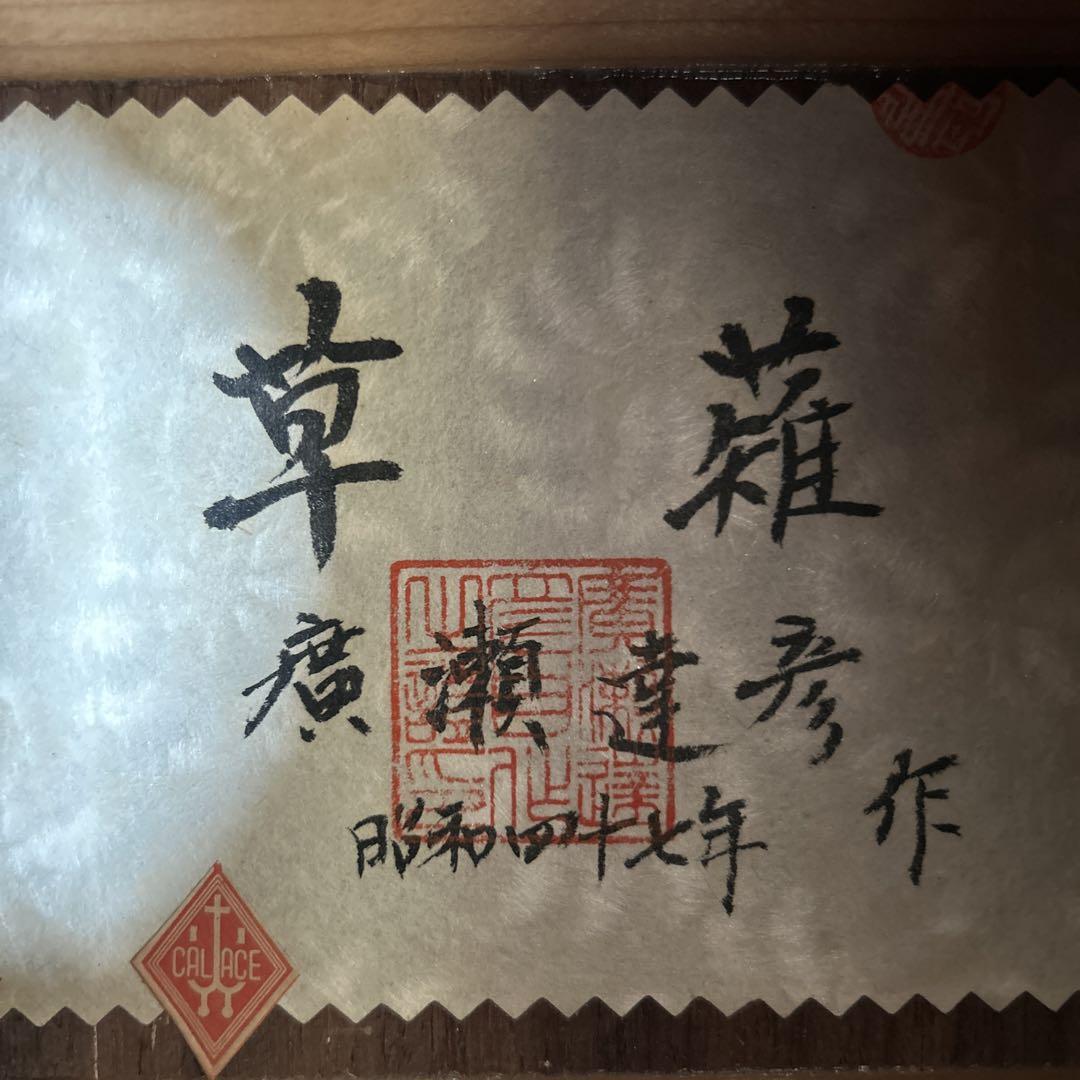 草薙
廣瀬達彦作
昭和四十七年
CALACE